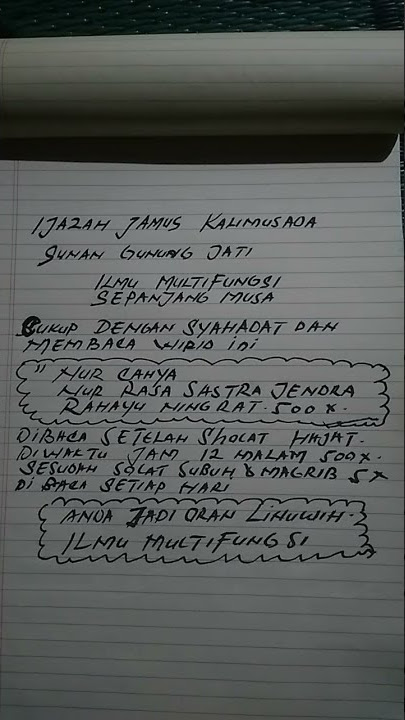 IJAZAH JAMUS KALIMUSADA
SUNAN GUNUNG JATI
ILMU MULTIFUNGSI
SEPANJANG MUSA
CUKUP DENGAN SYAHADAT DAN
MEMBACA WIRID ini
" NUR CAHYA
NUR RASA SASTRA JENDRA
RAHAYU NINGRAT. 500 X.
DIBACA SETELAH SHOLAT HAJAT.
DIWAKTU JAM 12 MALAM 500X.
SESUDAH SOLAT SUBUH & MAGRIB 5X
DI BACA SETIAP HARI
ANDA JADI ORAN LINUWIH.
ILMU MULTIFUNGSI